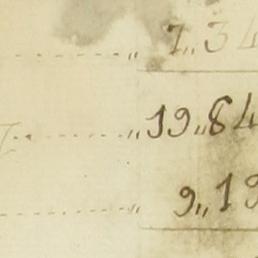 „ 7„34
„ 19„84
„ 9„19